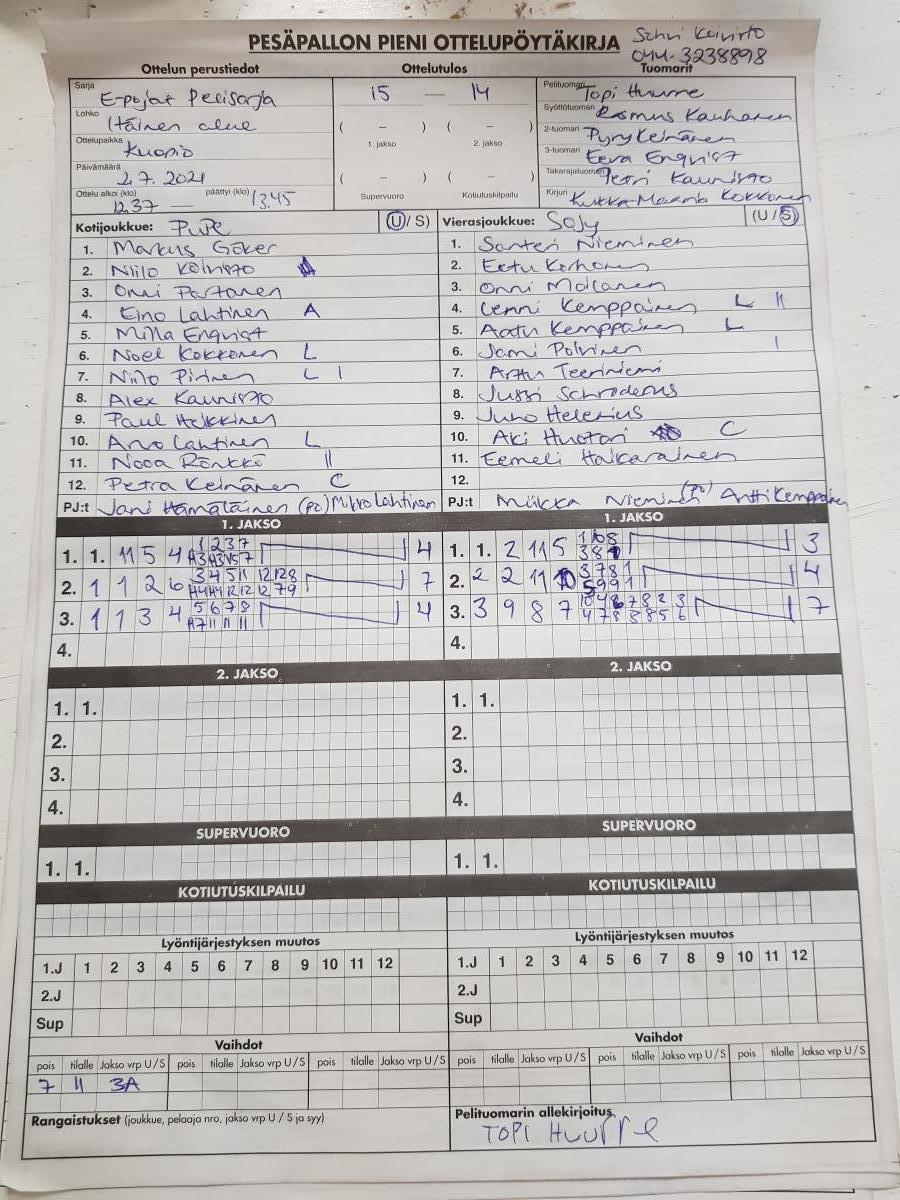 PESÄPALLON PIENI OTTELUPÖYTÄKIRJA
044-3238898
Ottelun perustiedot Ottelutulos Tuomarit
Sarja E-pojat Pelisarja
Lohko Itäinen alue
Ottelupaikka Kuopio
Päivämäärä 2.7.2021
Ottelu alkoi (klo) 12.37 — päättyi (klo) 13.45
15 — 14
( – ) ( – )
1. jakso 2. jakso
( – ) ( – )
Supervuoro Kotiutuskilpailu
Pelituomari Topi Huurre
Syöttötuomari Rasmus Kauhanen
2-tuomari Pyry Keinänen
3-tuomari Eeva Enqvist
Takarajatuomari Petri Kaunisto
Kirjuri Kukka-Maaria Kokkonen
Kotijoukkue: PuPe (U/ S)
1. Markus Göker
2. Niilo Koivisto
3. Onni Partanen
4. Eino Lahtinen A
5. Milla Enqvist
6. Noel Kokkonen L
7. Niilo Pirinen L I
8. Alex Kaunisto
9. Paul Heikkinen
10. Arvo Lahtinen L
11. Nooa Rönkkö II
12. Petra Keinänen C
PJ:t Jani Hämäläinen (pc) Mikko Lahtinen
Vierasjoukkue: SoJy (U / S)
1. Santeri Nieminen
2. Eetu Korhonen
3. Onni Moilanen
4. Lenni Kemppainen L II
5. Aatu Kemppainen L
6. Jami Polvinen I
7. Arttu Teeriniemi
8. Jussi Schroderus
9. Juho Helenius
10. Aki Huotari C
11. Eemeli Haikarainen
12.
PJ:t Miikka Nieminen (pc) Antti Kemppainen
1. JAKSO
1. 1. 11 5 4 1 2 3 7 4
2. 1 1 2 6 3 4 5 11 12 12 8 7
3. 1 1 3 4 5 6 7 8 4
A7 11 11 11
4.
1. JAKSO
1. 1. 2 11 5 3
2. 2 2 11 10 3 7 8 1 4
5 9 9 1
3. 3 9 8 7 7
4 7 8 8 8 5 6
4.
2. JAKSO
1. 1.
2.
3.
4.
2. JAKSO
1. 1.
2.
3.
4.
SUPERVUORO
1. 1.
SUPERVUORO
1. 1.
KOTIUTUSKILPAILU
KOTIUTUSKILPAILU
Lyöntijärjestyksen muutos
1.J 1 2 3 4 5 6 7 8 9 10 11 12
2.J
Sup
Lyöntijärjestyksen muutos
1.J 1 2 3 4 5 6 7 8 9 10 11 12
2.J
Sup
Vaihdot
pois tilalle Jakso vrp U / S pois tilalle Jakso vrp U / S pois tilalle Jakso vrp U / S
7 11 3A
Vaihdot
pois tilalle Jakso vrp U / S pois tilalle Jakso vrp U / S pois tilalle Jakso vrp U / S
Rangaistukset (joukkue, pelaaja nro, jakso vrp U / S ja syy)
Pelituomarin allekirjoitus
TOPI Huurre